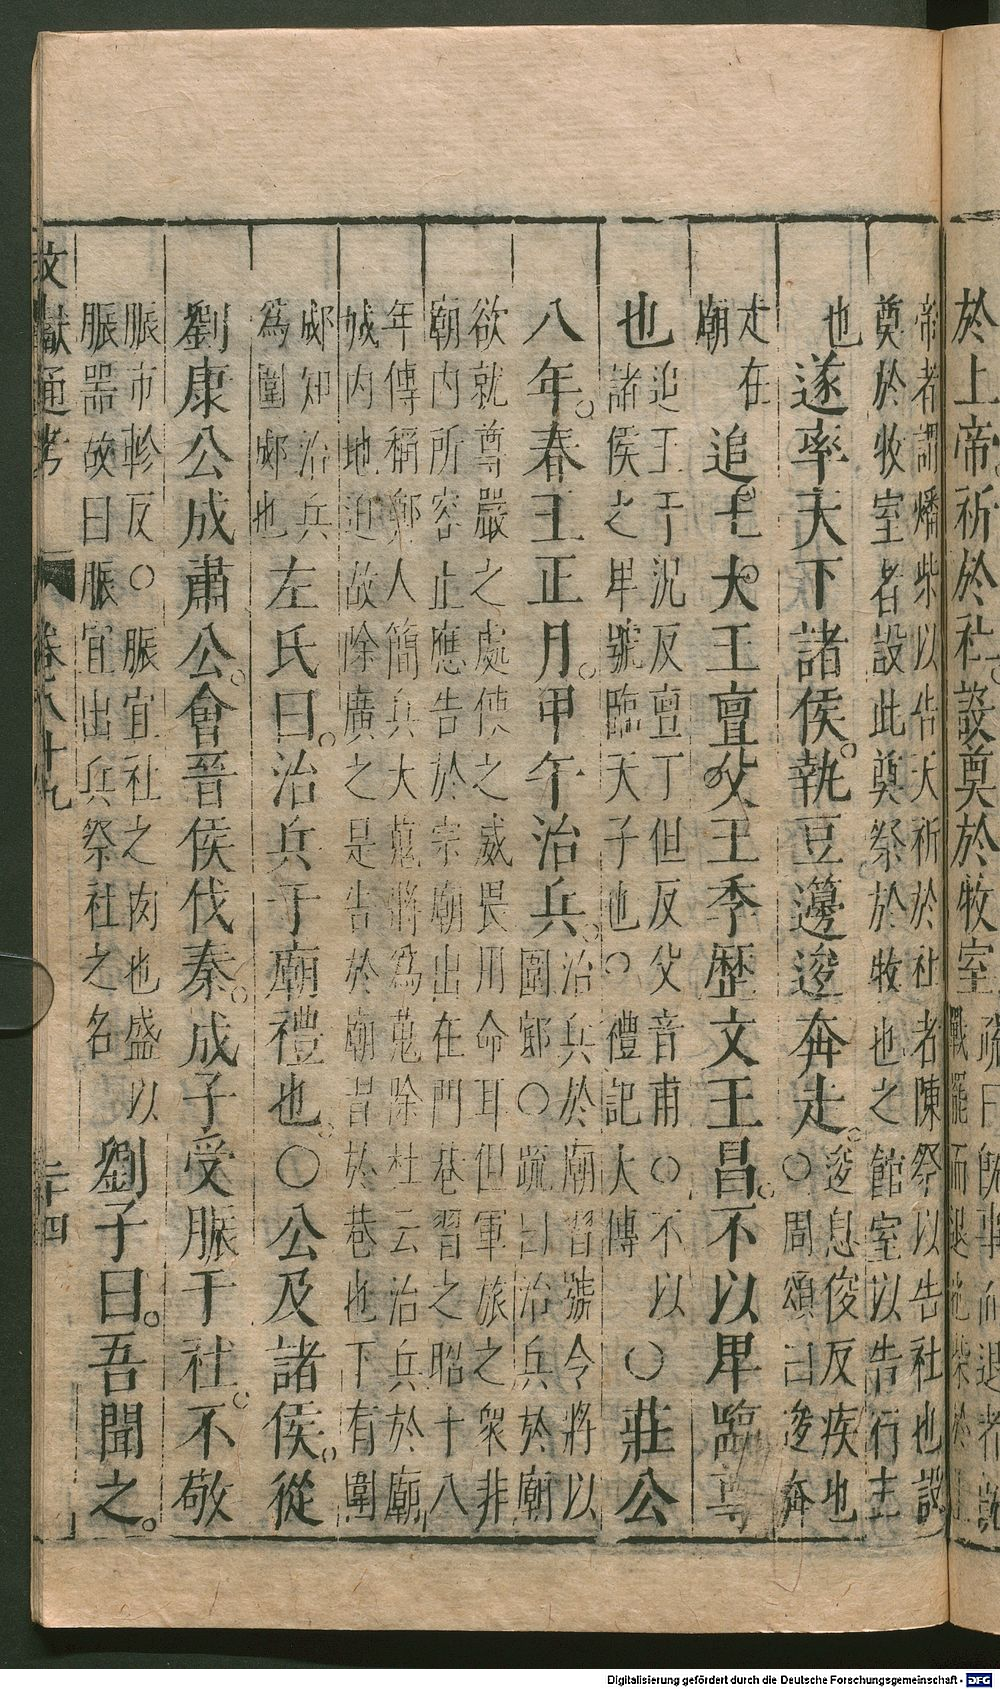 於上帝祈於社設奠於牧室
疏曰旣事而退者
戰罷而退也柴於上
帝者謂燔柴以告天祈於社者陳祭以告社也設
奠於牧室者設此奠祭於牧也之館室以告行主
也遂率天下諸侯執豆籩逡奔走
逡息俊反疾也
○周頌曰逡奔
走在
廟
追王大王亶父王季歷文王昌不以卑臨尊
也
追王于況反亶丁但反父音甫○不以
諸侯之卑號臨天子也○禮記大傳
○莊公
八年春王正月甲午治兵
治兵於廟習號令將以
圍郕○疏曰治兵於廟
欲就尊嚴之處使之威畏用命耳但軍旅之衆非
廟內所容止應告於宗廟出在門巷習之昭十八
年傳稱鄭人簡兵大蒐將爲蒐除杜云治兵於廟
城內地迫故除廣之是告於廟習於巷也下有圍
郕知治兵
爲圍郕也
左氏曰治兵于廟禮也○公及諸侯從
劉康公成肅公會晉侯伐秦成子受脤于社不敬
脤市軫反○脤宜社之肉也盛以
脤器故曰脤宜出兵祭社之名
劉子曰吾聞之
文獻通考 卷八十九 二十四
Digitalisierung gefördert durch die Deutsche Forschungsgemeinschaft - DFG